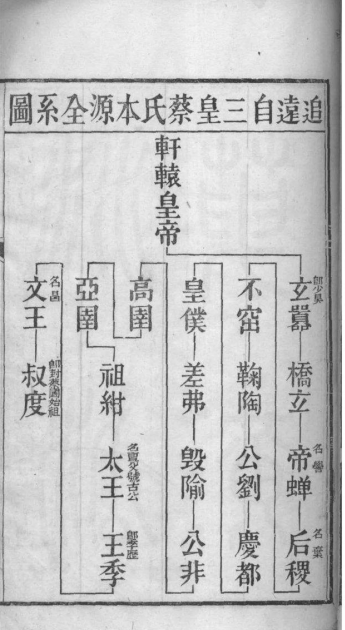 追遠自三皇蔡氏本源全系圖
軒轅皇帝
玄囂 即少昊
橋立
帝蟬 名嚳
后稷 名棄
不窋
鞠陶
公劉
慶都
皇僕
差弗
毀隃
公非
高圉
亞圉
祖紺
太王 名亶父號古公
王季 即季歷
文王 名昌
叔度 即封蔡國始祖